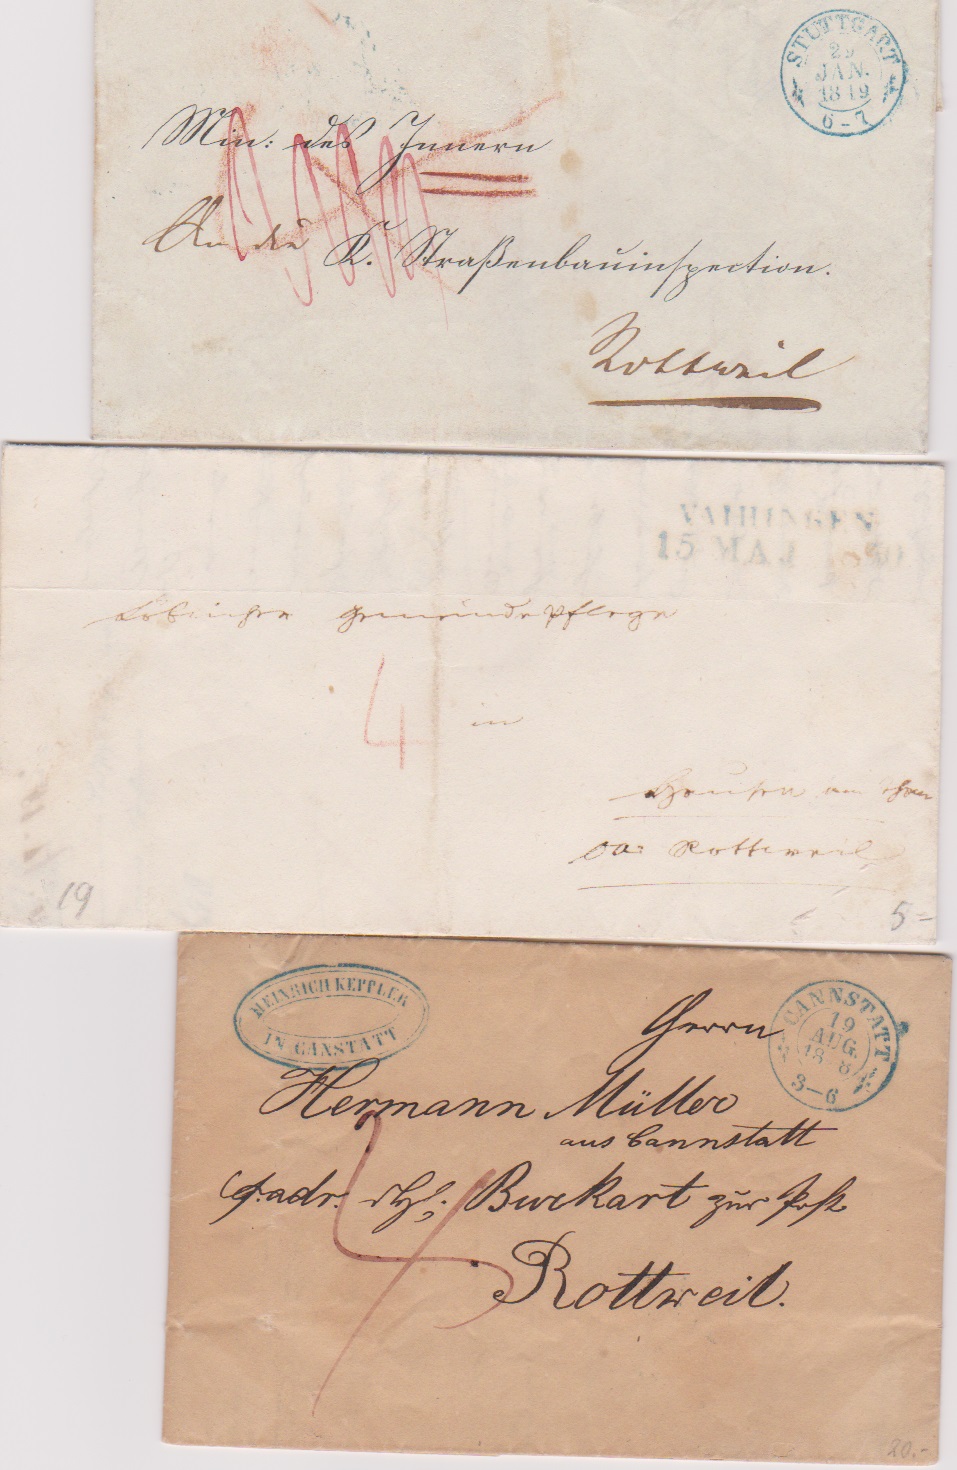 STUTTGART
29
JAN.
1849
6-7
Min: des Innern
An die K. Straßenbauinspection.
Rottweil
VAIHINGEN
15 MAJ
Löbliche Gemeindepflege
4
in
Hausen am Than
OA. Rottweil
19
5=
HEINRICH KEPPLER
IN CANSTATT
CANNSTATT
19
AUG.
3-6
Herrn
Hermann Müller
aus Cannstatt
p. adr. Burkart zur Post
Rottweil.
20.-